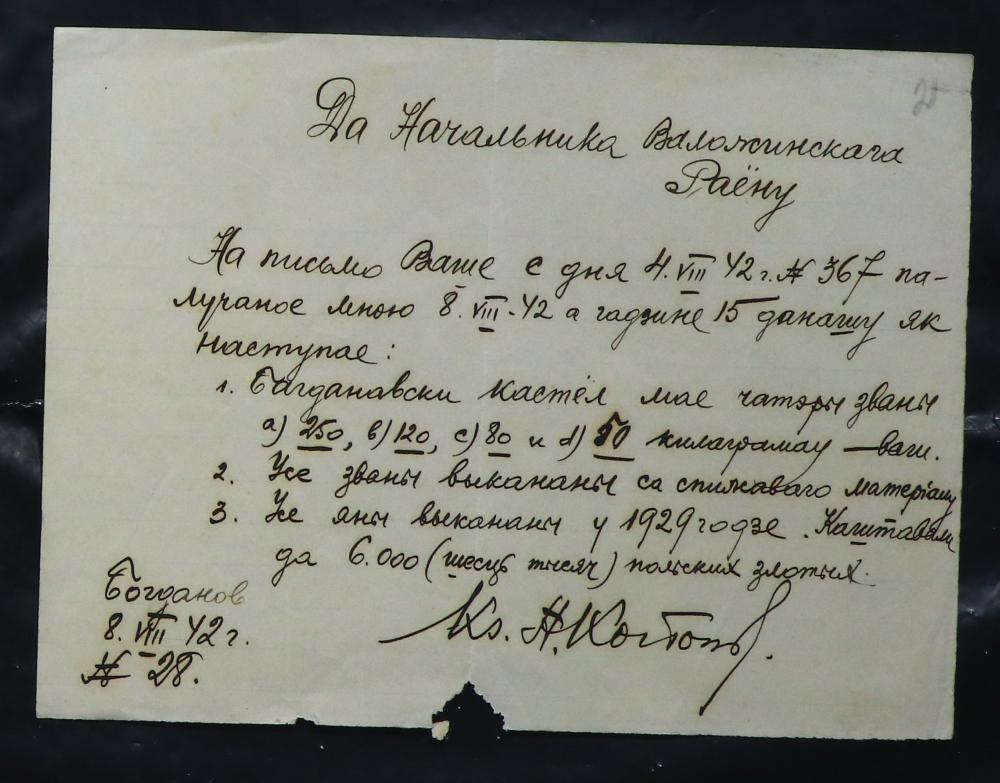 Да Начальника Валожинскага
Раёну
На письмо Ваше с дня 4. VIII 42 г. № 367 па-
лучаное мною 8. VIII - 42 а гадзине 15 данашу як
наступае:
1. Багданавски кастёл мае чатэры званы
а) 250, в) 120, с) 80 и d) 50 килаграмау — ваги.
2. Усе званы выкананы са спижаваго матерiалу
3. Усе яны выкананы у 1929 годзе. Каштавали
да 6.000 (шесць тысяч) польских злотых.
Богданов
8. VIII 42 г.
№ 28.
Кs. А.